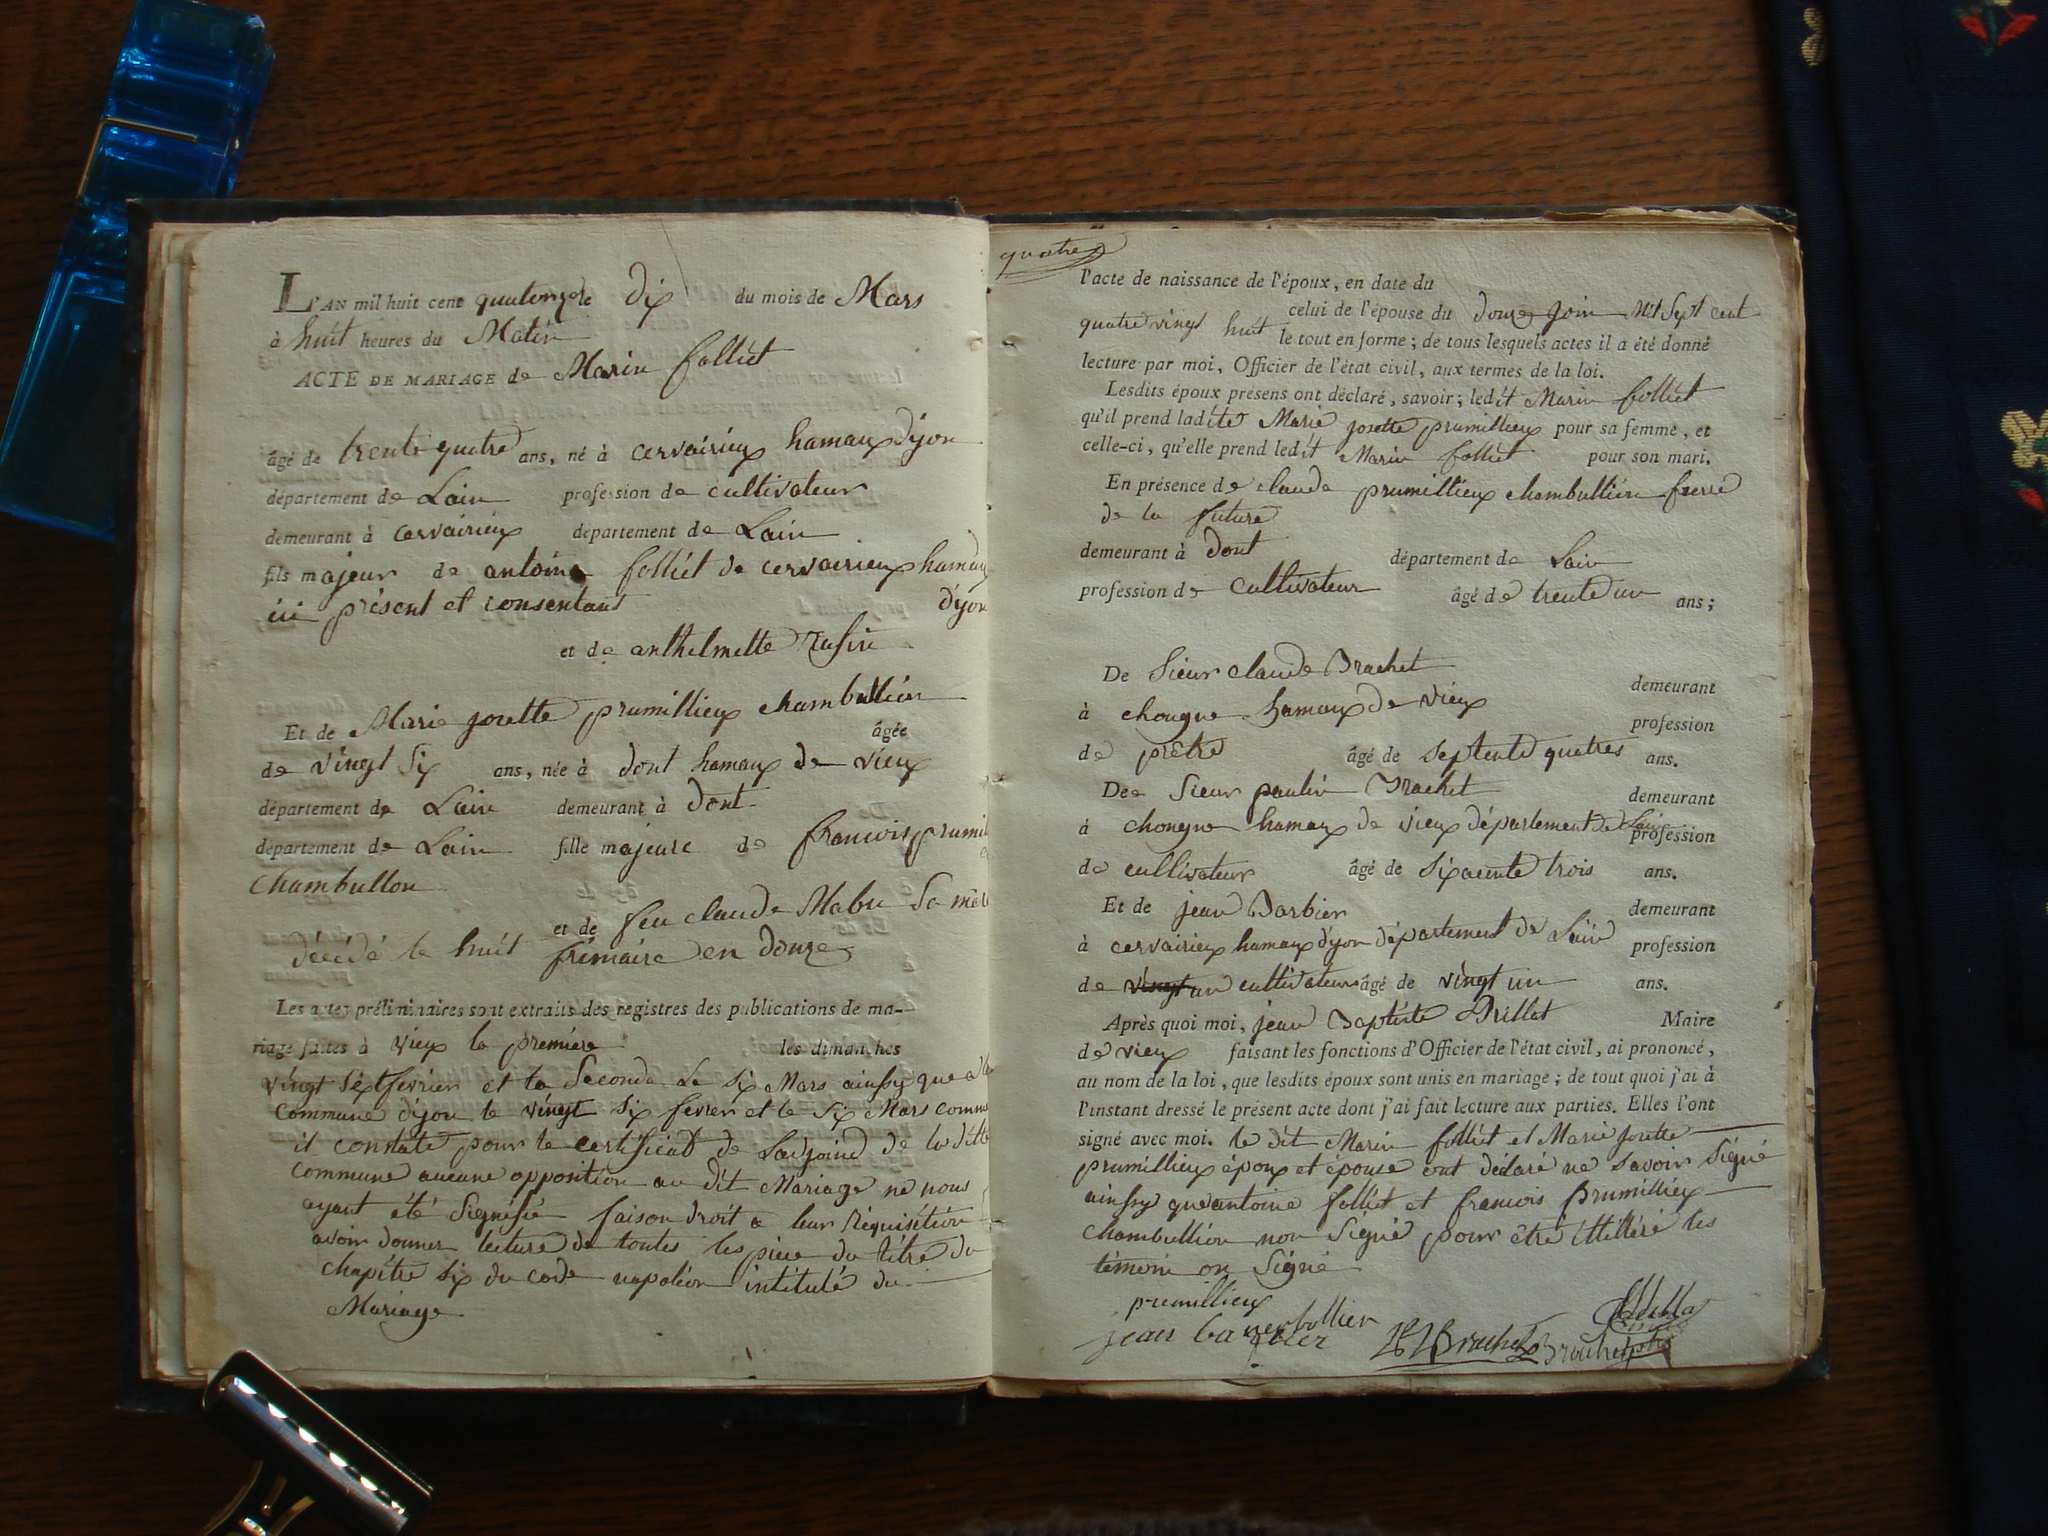 L'AN mil huit cent quatorze le dix du mois de Mars
à huit heures du Matin
ACTE DE MARIAGE de Marin folliet
âgé de trente quatre ans, né à cervairieux hamaux d'yon
département de Lain profession de cultivateur
demeurant à cervairieux département de Lain
fils majeur de antoine folliet de cervairieux hamaux
d'yon
ici présent et consentant
et de anthelmette
Et de Marie josette prumillieux chambullion
âgée
de vingt six ans, née à dont hamaux de vieux
département de Lain demeurant à dont
département de Lain fille majeure de francois prumil
chambullon
et de feu claude Mabu Sa mère
décédé le huit frimaire en douze
Les actes préliminaires sont extraits des registres des publications de ma-
riage faites à vieux la première les dimanches
vingt sept fevrier et la Seconde Le six Mars ainsy que
commune d'yon le vingt six fevrier et le six Mars comme
il constate pour le certificat de Ladjoind de la ditte
commune aucune opposition au dit Mariage ne nous
ayant été Signifié faison droit a leur Réquisition
avoir donner lecture de toutes les piece du titre du
chapitre six du code napoléon intitulé du
Mariage
quatre
l'acte de naissance de l'époux, en date du
celui de l'épouse du douze join Mil Sept cent
quatre vingt huit le tout en forme ; de tous lesquels actes il a été donné
lecture par moi, Officier de l'état civil, aux termes de la loi.
Lesdits époux présens ont déclaré, savoir ; ledit Marin folliet
qu'il prend ladite Marie josette prumillieux pour sa femme, et
celle-ci, qu'elle prend ledit Marin folliet pour son mari.
En présence de claude prumillieux chambullion frere
de la future
demeurant à dont département de Lain
profession de cultivateur âgé de trente un ans ;
De Sieur claude Brachet
demeurant
à chongne hamaux de vieux
profession
de prêtre âgé de septente quatres ans.
De Sieur paulin Brachet demeurant
à chongne hamaux de vieux département de Lain profession
de cultivateur âgé de sixacente trois ans.
Et de jean Barbier demeurant
à cervairieux hamaux d'yon département de Lain profession
de vingt un cultivateur âgé de vingt un ans.
Après quoi moi, jean Baptiste Brillat Maire
de vieux faisant les fonctions d'Officier de l'état civil, ai prononcé,
au nom de la loi, que lesdits époux sont unis en mariage ; de tout quoi j'ai à
l'instant dressé le présent acte dont j'ai fait lecture aux parties. Elles l'ont
signé avec moi. le dit Marin folliet et Marie josette
prumillieux époux et épouse ont déclaré ne savoir Signé
ainsy que antoine folliet et francois prumillieux
chambullion non Signé pour être illiteré les
témoin on Signé
prumillieux
jean
Brachet